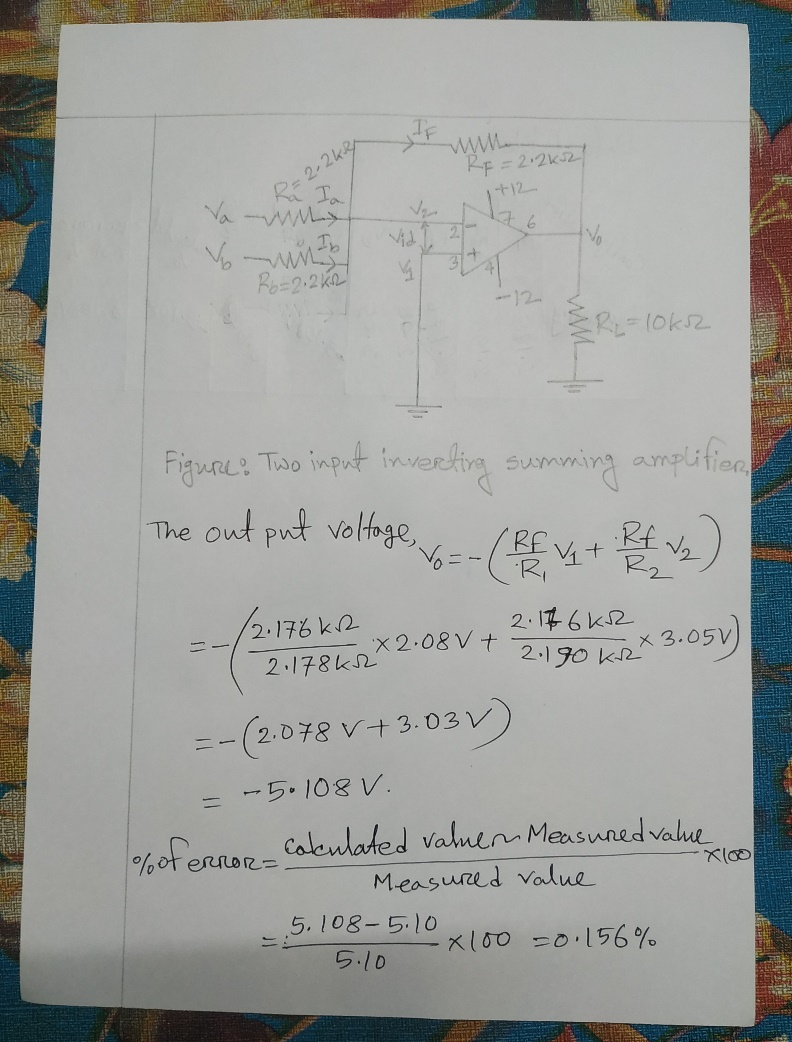 I_F
R_F = 2.2kΩ
Ra = 2.2kΩ
Va Ia
Vb Ib
Rb = 2.2kΩ
V2
Vid
V1
2 -
3 +
+12
7
6
4
-12
Vo
R_L = 10kΩ
Figure: Two input inverting summing amplifier.
The out put voltage, Vo = - (Rf/R1 V1 + Rf/R2 V2)
= - (2.176 kΩ/2.178 kΩ × 2.08 V + 2.176 kΩ/2.190 kΩ × 3.05V)
= - (2.078 V + 3.03 V)
= -5.108 V.
% of error = calculated value ~ Measured value/Measured value × 100
= 5.108 - 5.10/5.10 × 100 = 0.156%